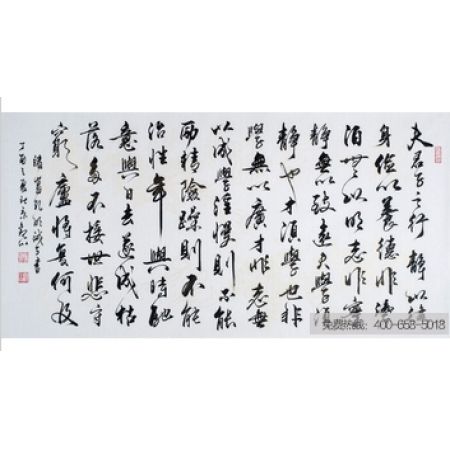 夫君子之行靜以修
身儉以養德非澹
泊無以明志非寧
靜無以致遠夫學須
靜也才須學也非
學無以廣才非志無
以成學淫慢則不能
勵精險躁則不能
治性年與時馳
意與日去遂成枯
落多不接世悲守
窮廬將復何及
諸葛孔明誡子書
丁酉之夏
免费热线：400-658-5018